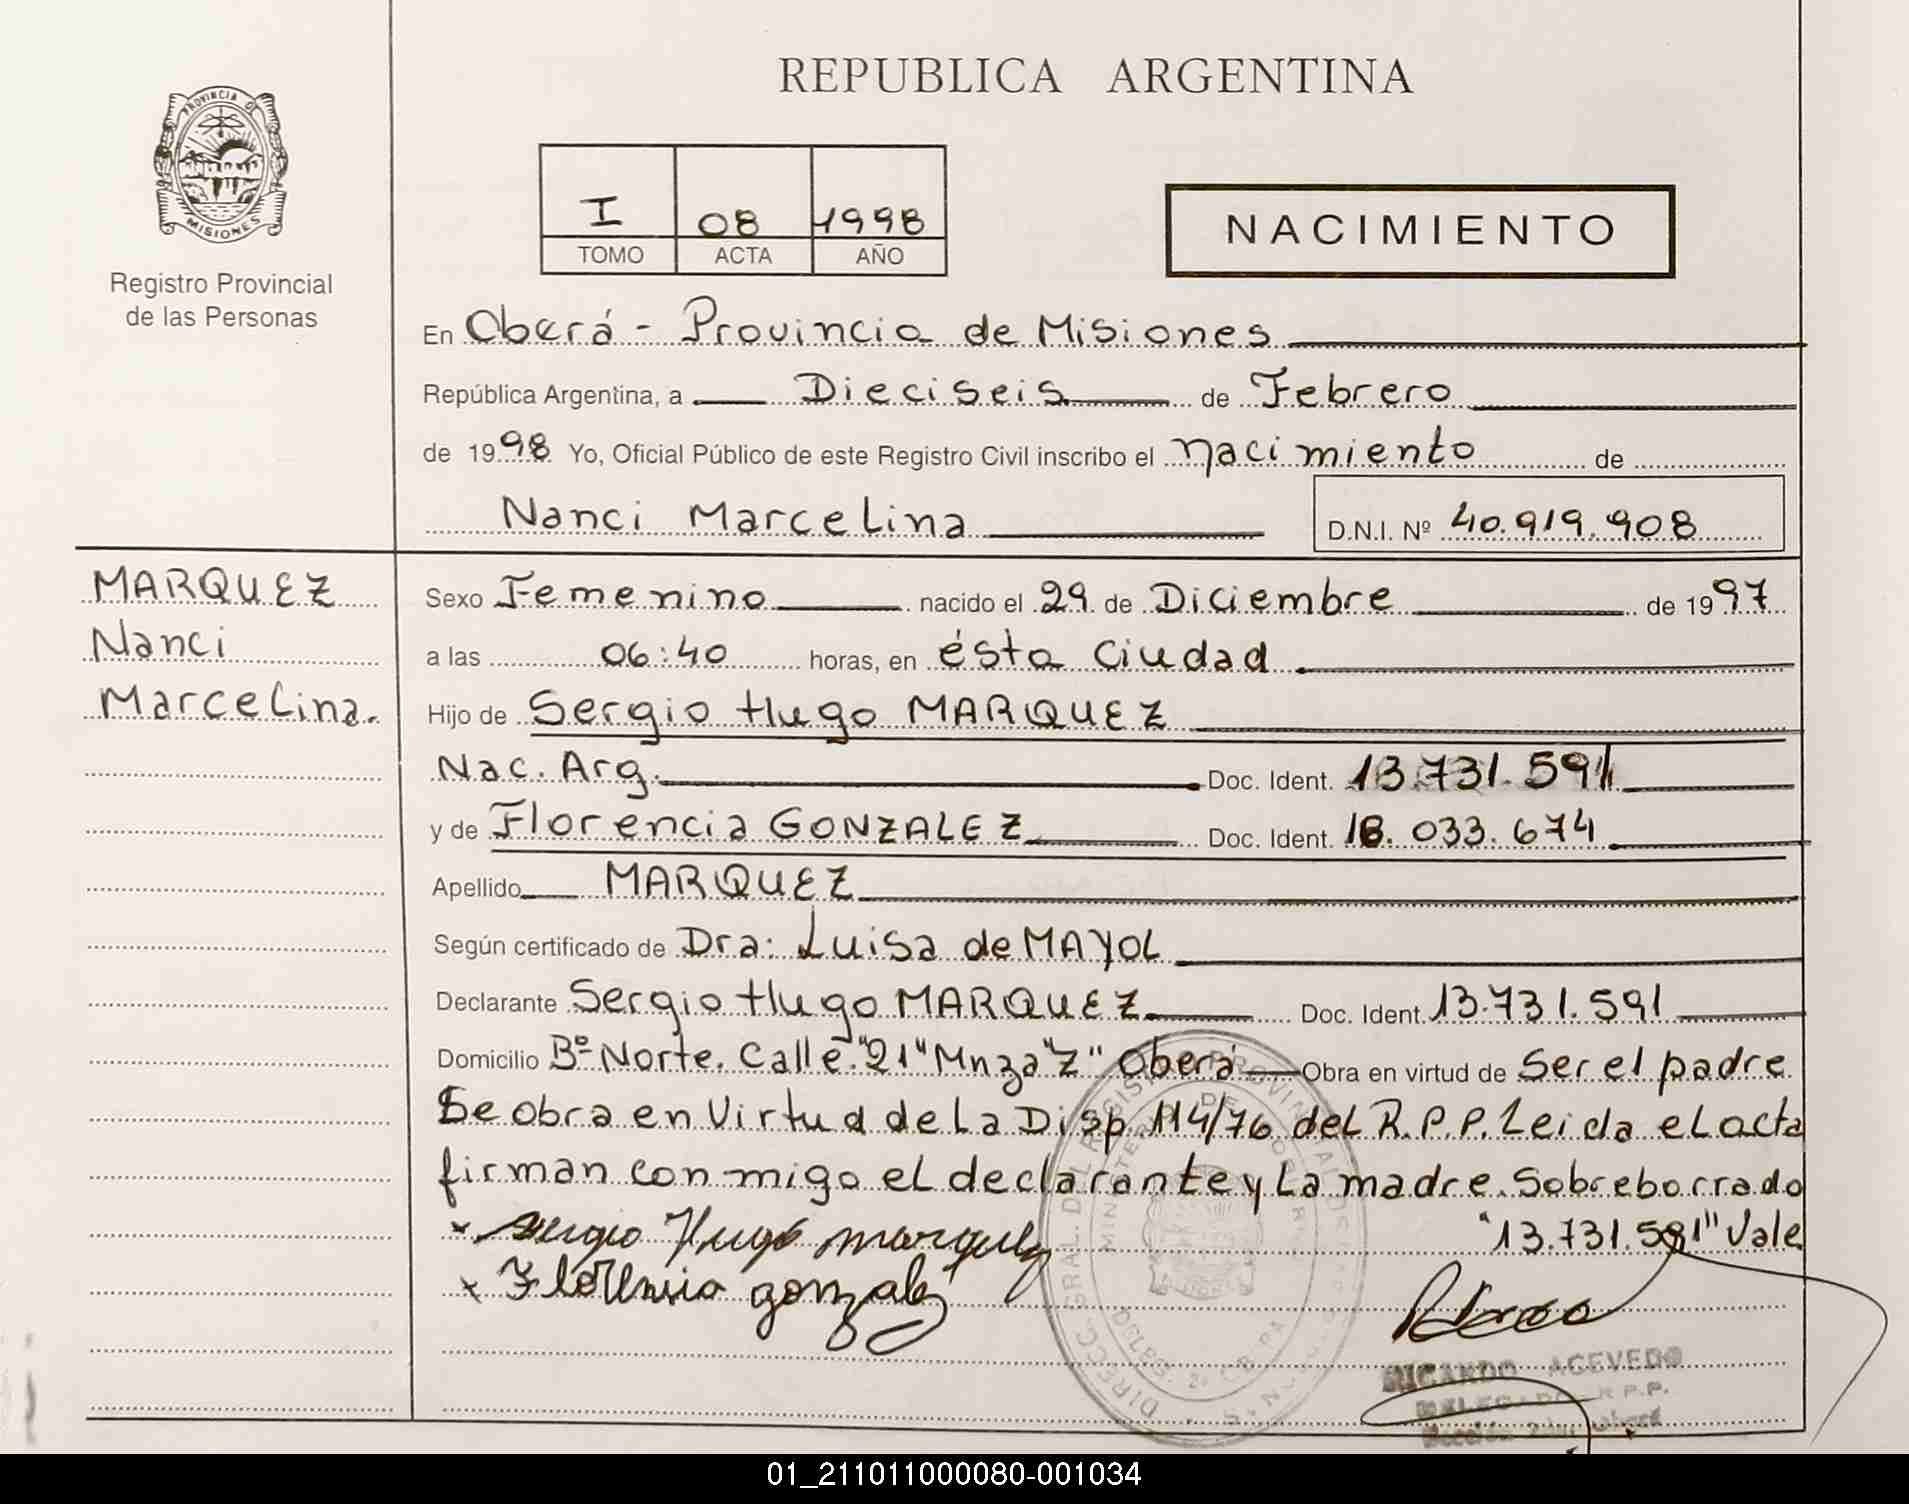 REPUBLICA ARGENTINA
PROVINCIA D
MISIONES
Registro Provincial
de las Personas
I 08 1998
TOMO ACTA AÑO
NACIMIENTO
En Oberá - Provincia de Misiones
República Argentina, a Dieciseis de Febrero
de 1998 Yo, Oficial Público de este Registro Civil inscribo el nacimiento de
Nanci Marcelina D.N.I. Nº 40.919.908
MARQUEZ
Nanci
Marcelina.
Sexo Femenino nacido el 29 de Diciembre de 1997
a las 06:40 horas, en ésta Ciudad
Hijo de Sergio Hugo MARQUEZ
Nac. Arg. Doc. Ident. 13.731.591
y de Florencia GONZALEZ Doc. Ident. 18.033.674
Apellido MARQUEZ
Según certificado de Dra: Luisa de MAYOL
Declarante Sergio Hugo MARQUEZ Doc. Ident. 13.731.591
Domicilio Bº Norte. Calle "21" Mnza "Z" Oberá Obra en virtud de Ser el padre
Se obra en Virtud de La Disp. 114/76 del R.P.P. Leida el acta
firman conmigo el declarante y La madre. Sobreborrado
"13.731.591" Vale
x Sergio Hugo marquez
x Florencia gonzalez
RICARDO ACEVEDO
DELEGADO R.P.P.
01_211011000080-001034